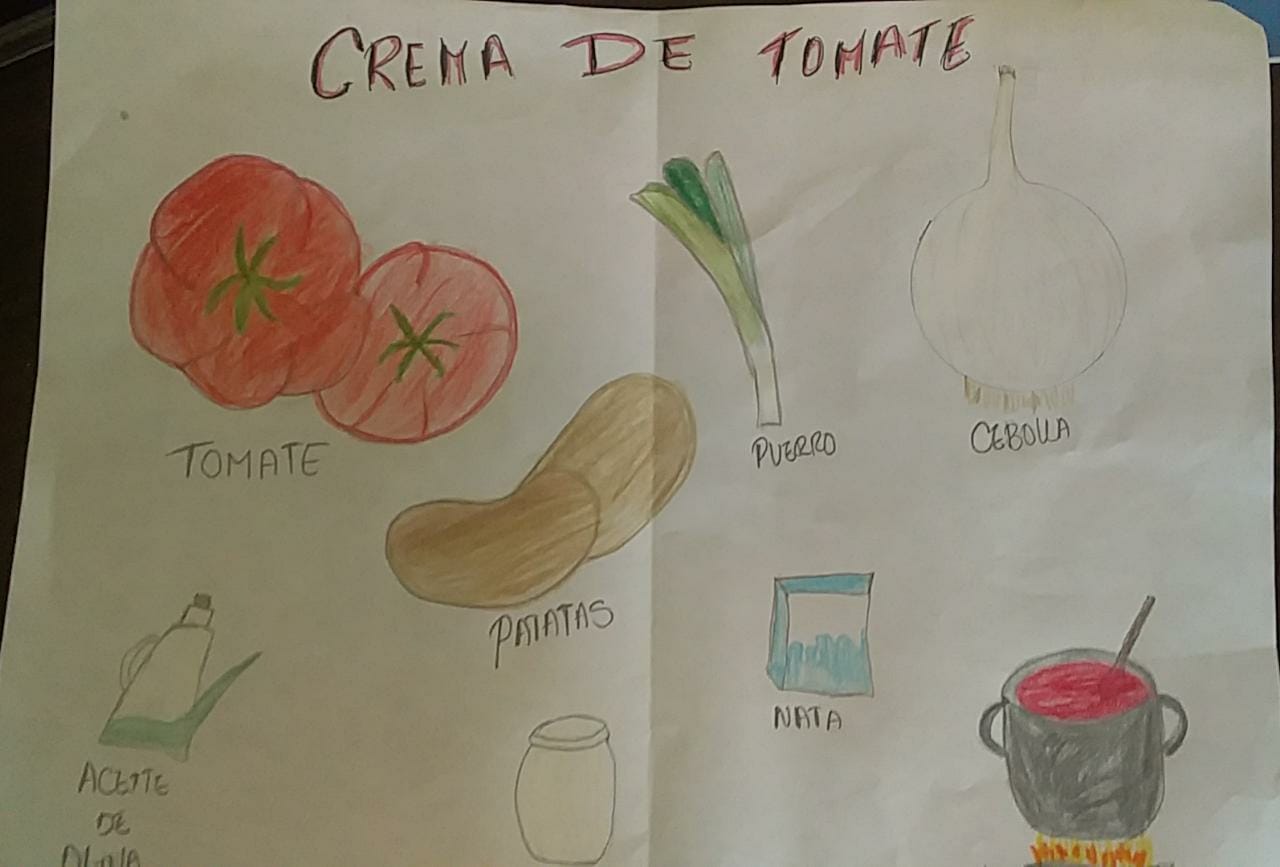 CREMA DE TOMATE
TOMATE
PUERRO
CEBOLLA
PATATAS
NATA
ACEITE
DE
OLIVA